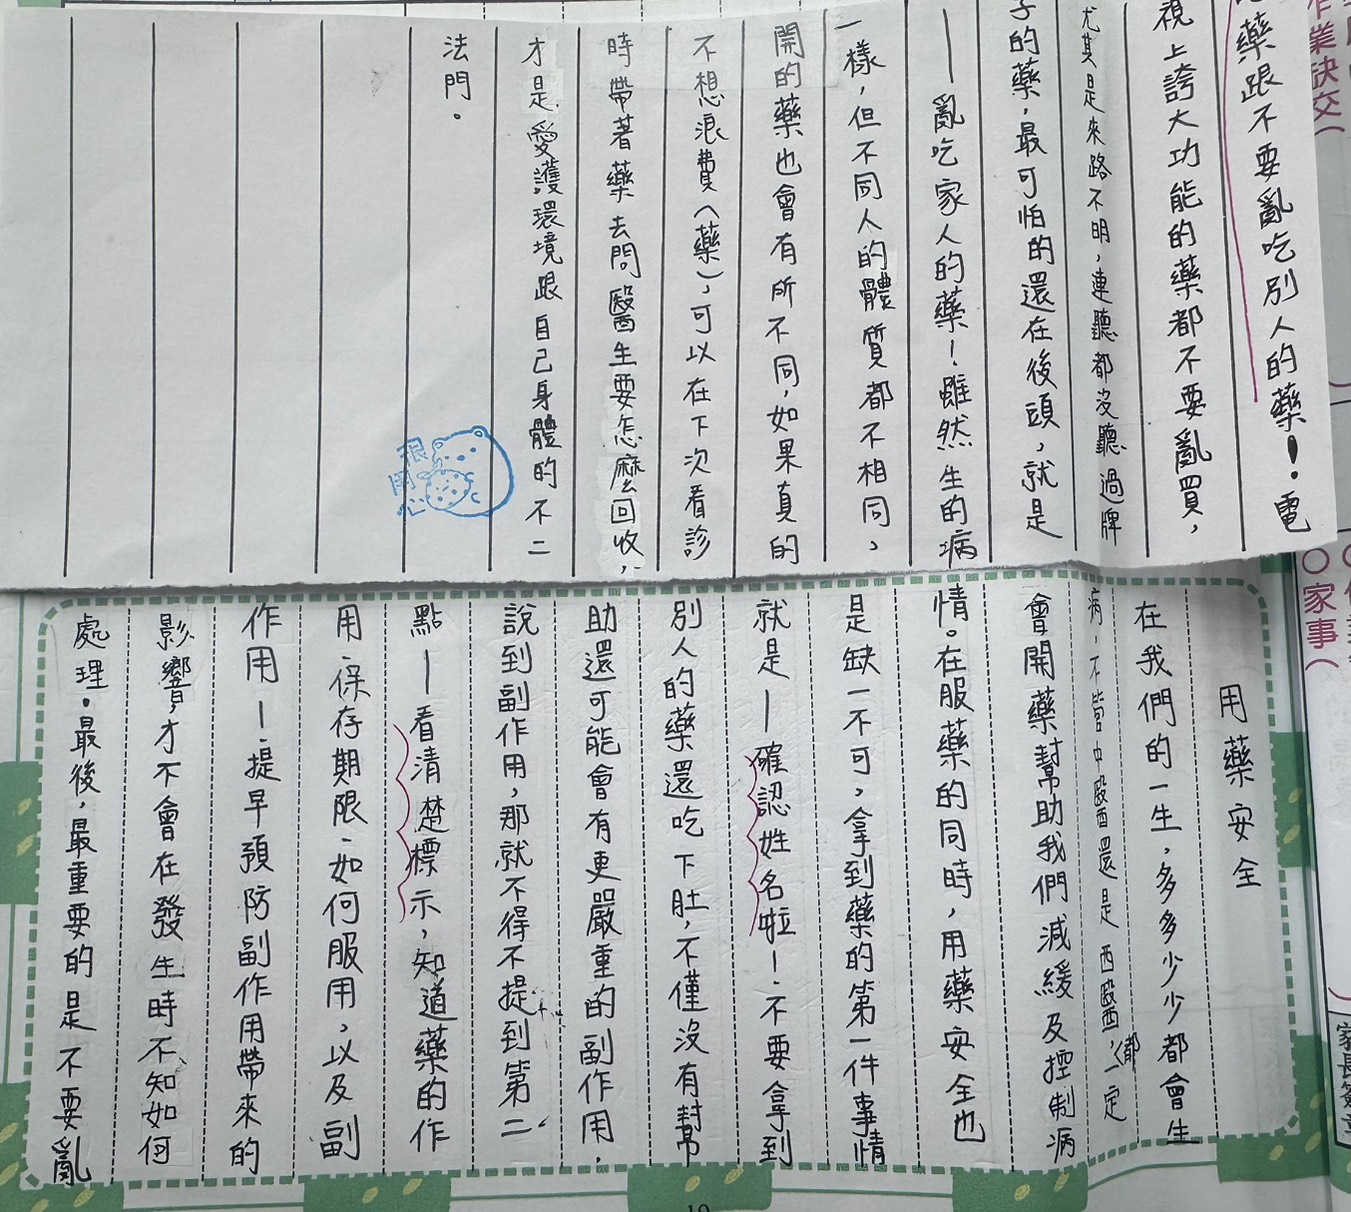 用藥安全
在我們的一生，多多少少都會生
病，不管中醫還是西醫，都一定
會開藥幫助我們減緩及控制病
情。在服藥的同時，用藥安全也
是缺一不可，拿到藥的第一件事情
就是—確認姓名啦！不要拿到
別人的藥還吃下肚，不僅沒有幫
助還可能會有更嚴重的副作用，
說到副作用，那就不得不提到第二
點—看清楚標示，知道藥的作
用、保存期限、如何服用，以及副
作用！提早預防副作用帶來的
影響，才不會在發生時不知如何
處理。最後，最重要的是不要亂
吃藥跟不要亂吃別人的藥！電
視上誇大功能的藥都不要亂買，
尤其是來路不明，連聽都沒聽過牌
子的藥，最可怕的還在後頭，就是
—亂吃家人的藥！雖然生的病
一樣，但不同人的體質都不相同，
開的藥也會有所不同，如果真的
不想浪費（藥），可以在下次看診
時帶著藥去問醫生要怎麼回收，
才是愛護環境跟自己身體的不二
法門。
很用心
作業缺交（
家事（
家長簽章
19